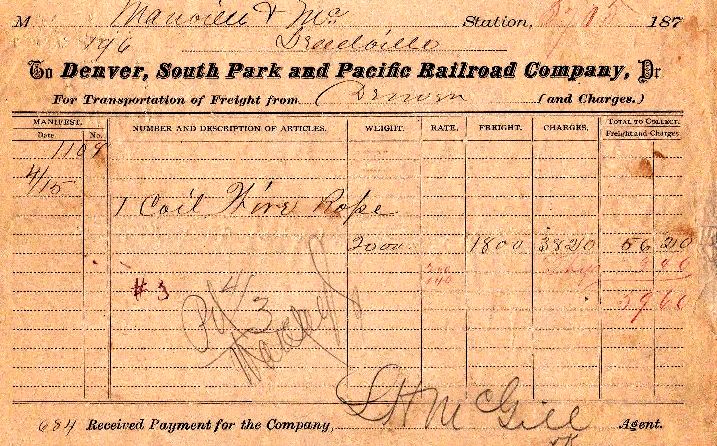 M Manville & Mc Station, 187
Leadville
To Denver, South Park and Pacific Railroad Company, Dr
For Transportation of Freight from Denver (and Charges.)
MANIFEST. NUMBER AND DESCRIPTION OF ARTICLES. WEIGHT. RATE. FREIGHT. CHARGES. TOTAL TO COLLECT.
Date. No. Freight and Charges
1109
4/15
1 Coil Wire Rope
2000 1800 3820 56 20
# 3
59 60
684 Received Payment for the Company, McGill Agent.